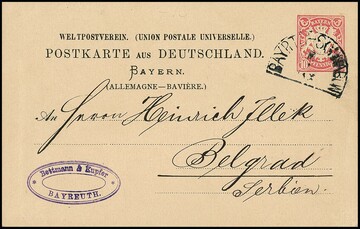 WELTPOSTVEREIN. (UNION POSTALE UNIVERSELLE.)
POSTKARTE AUS DEUTSCHLAND.
BAYERN.
(ALLEMAGNE—BAVIÈRE.)
BAYERN
10 PFENNIG 10
An Herrn Heinrich Illek
Belgrad
Serbien.
Bettmann & Kupfer
BAYREUTH.